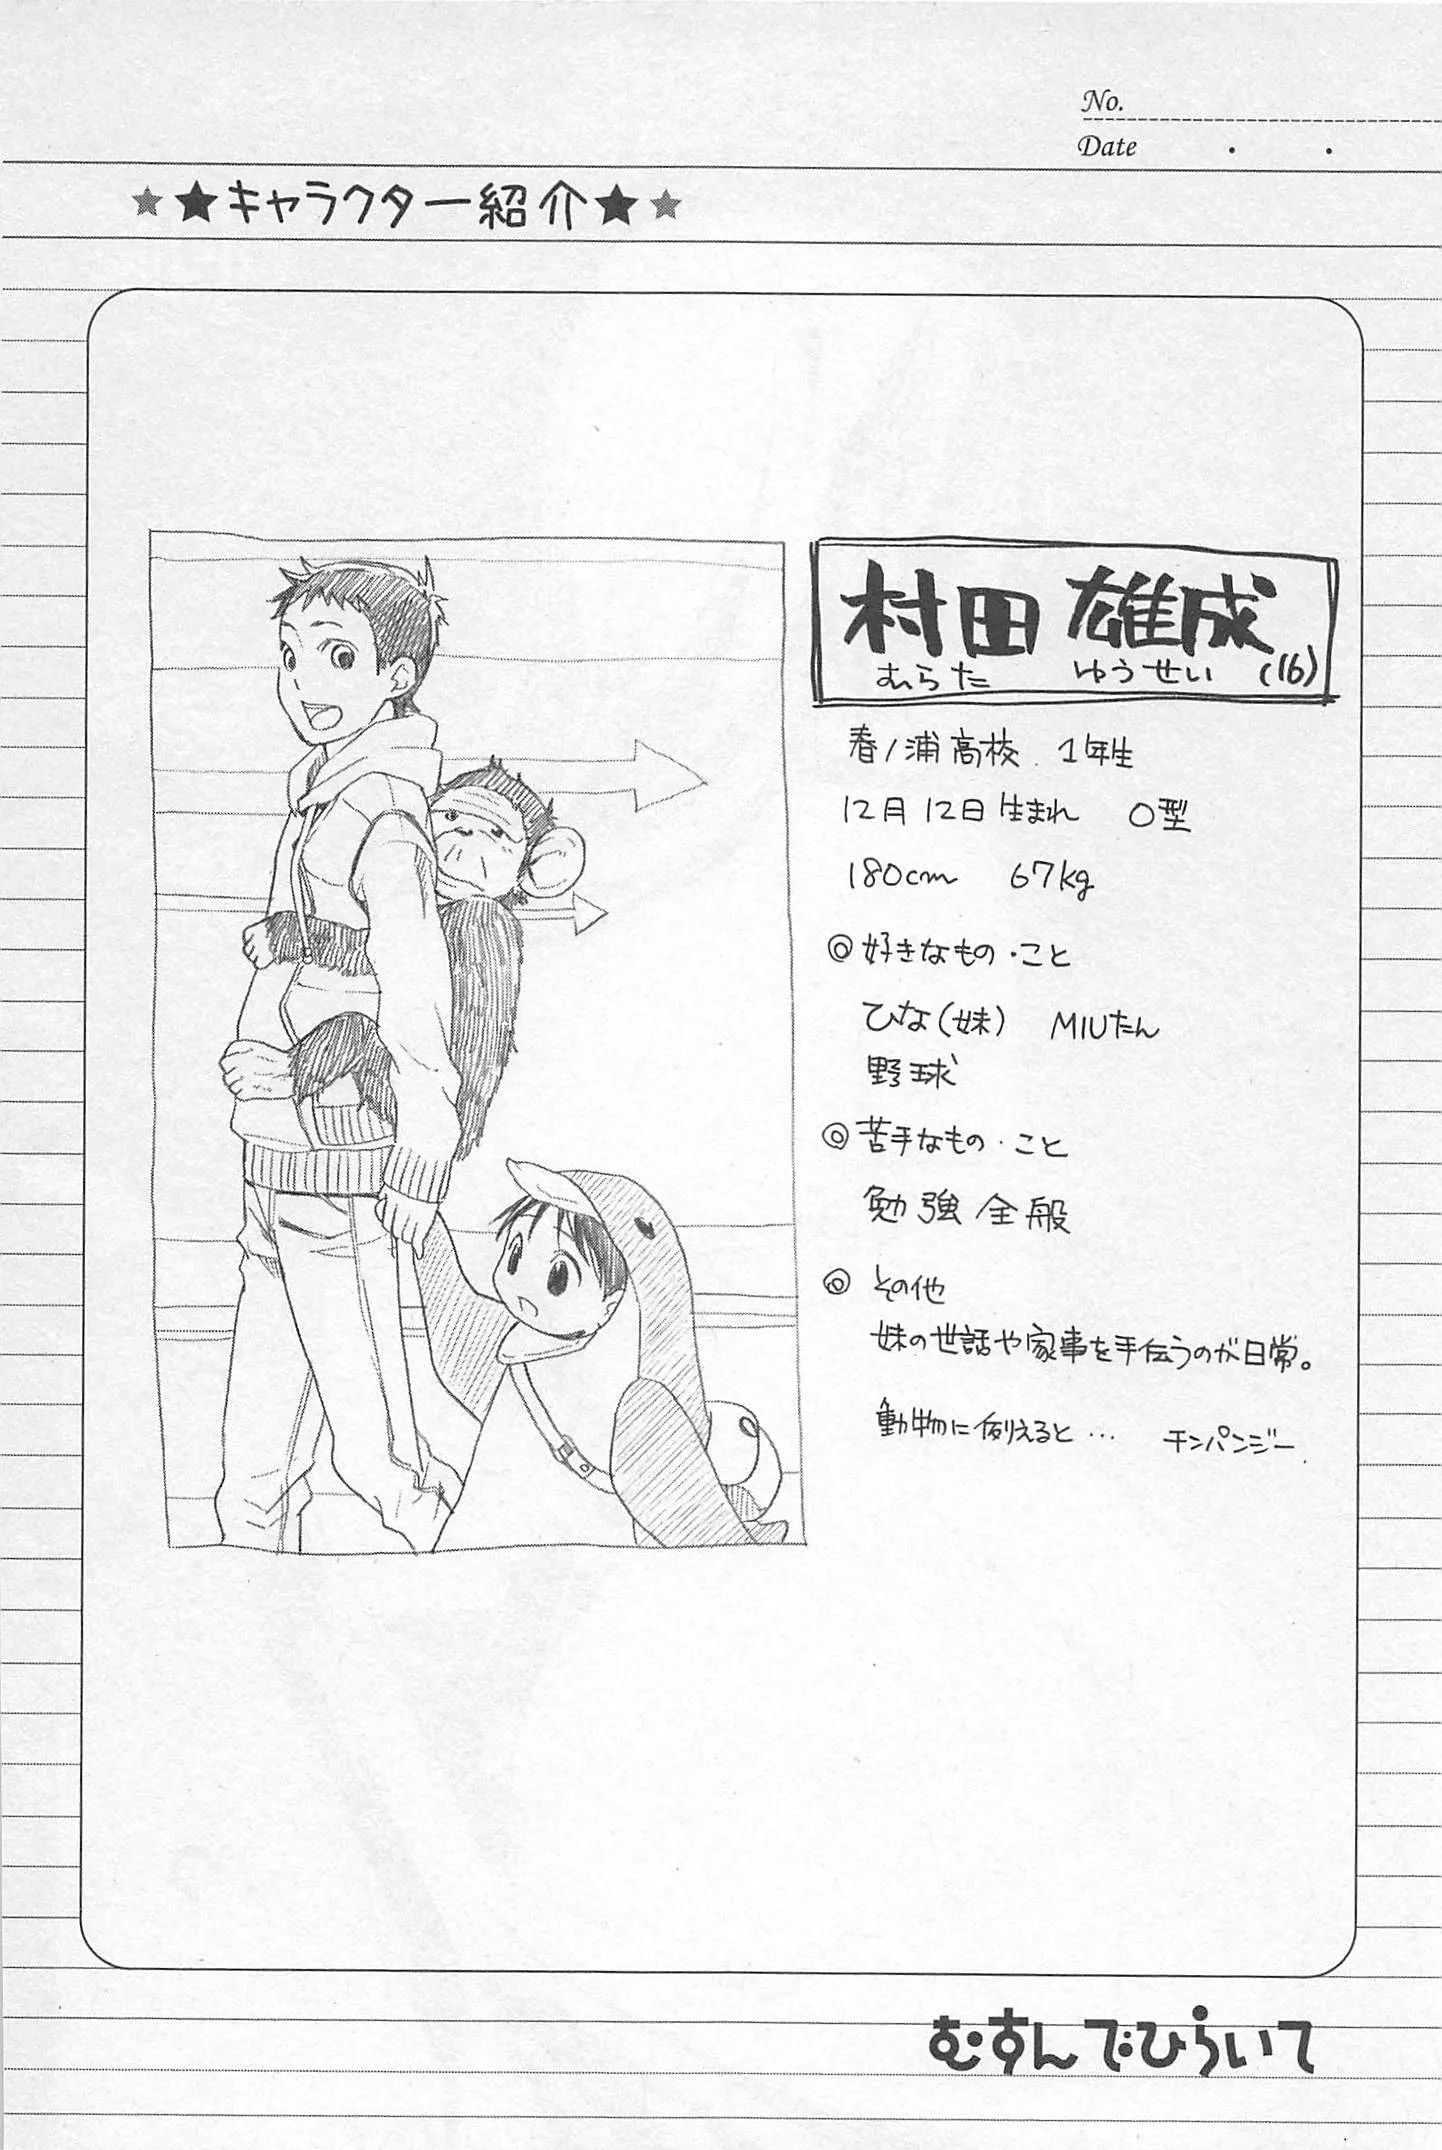 No.
Date ・ ・
★★キャラクター紹介★★
村田 雄成
むらた ゆうせい (16)
春ノ浦高校 1年生
12月12日生まれ O型
180cm 67kg
◎好きなもの・こと
ひな(妹) MIUたん
野球
◎苦手なもの・こと
勉強全般
◎その他
妹の世話や家事を手伝うのが日常。
動物に例えると… チンパンジー
むすんでひらいて